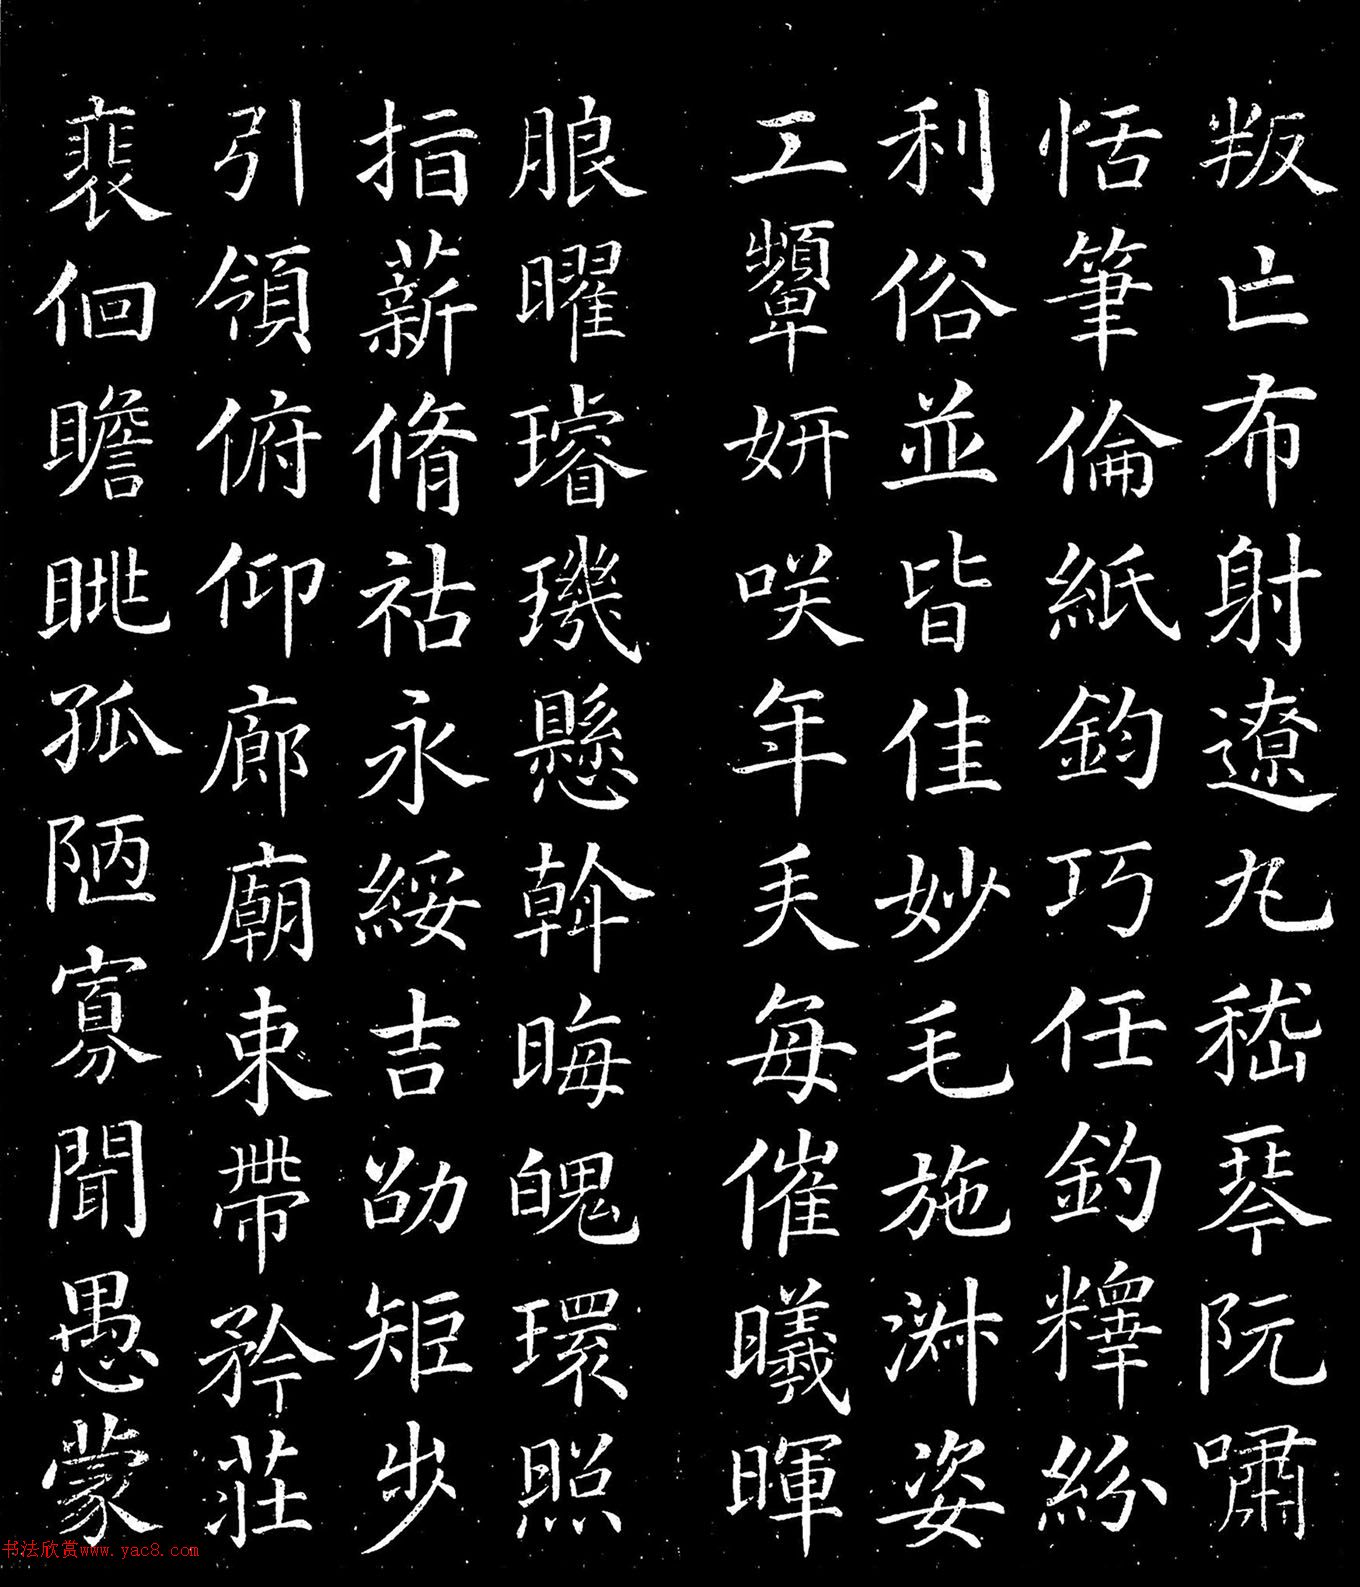 叛亡布射遼丸嵇琴阮嘯
恬筆倫紙鈞巧任釣釋紛
利俗並皆佳妙毛施淑姿
工顰妍咲年矢每催曦暉
朗曜璿璣懸斡晦魄環照
指薪脩祜永綏吉劭矩步
引領俯仰廊廟束帶矜莊
裴佪瞻眺孤陋寡聞愚蒙
书法欣赏www.yac8.com